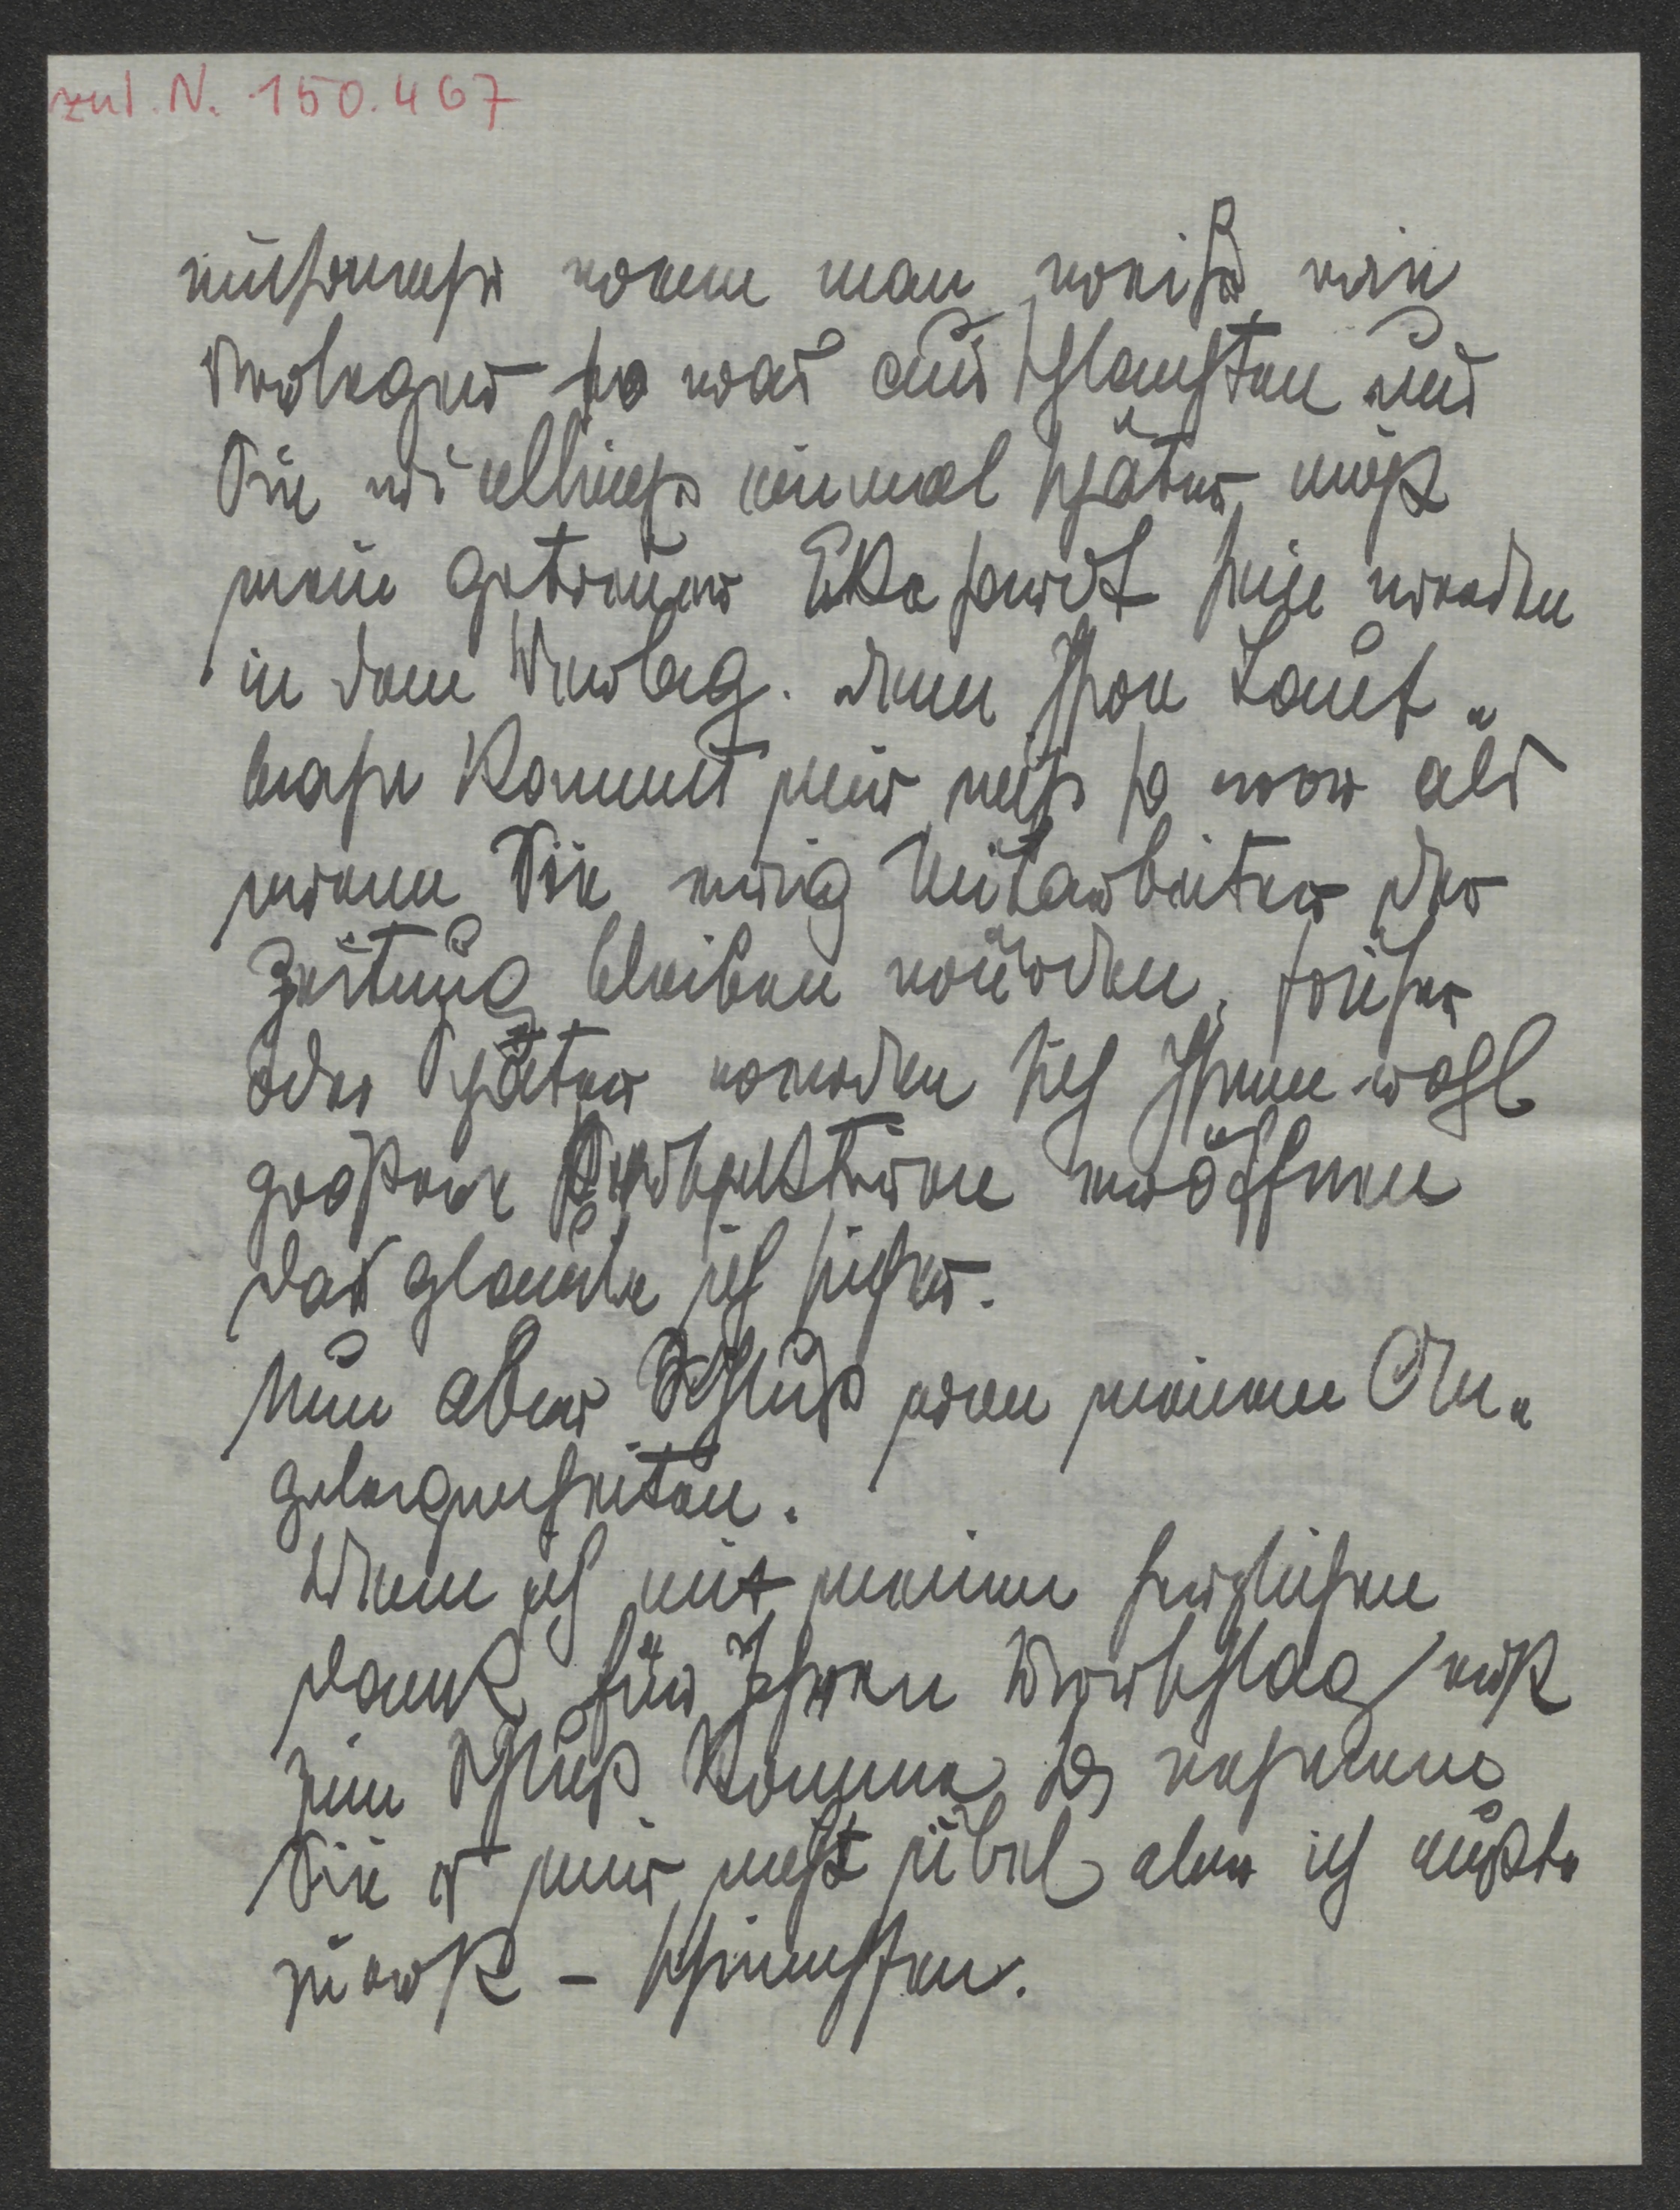 zu I.N. 150.467
wenn man weiß wie
Verleger so was ausschlachten und
Sie vielleicht einmal später noch
mein getreuer Ekkehardt sein werden
in dem Verlag. denn Ihre Lauf-
bahn kommt mir nicht so vor als
wenn Sie ewig Mitarbeiter der
Zeitung bleiben würden, früher
oder später werden sich Ihnen wohl
größere Perspektiven eröffnen
das glaube ich sicher.
Nun aber Schluß von meinen An-
gelegenheiten.
Wenn ich mit meinem herzlichen
dank für Ihren Vorschlag erst
zum Schluß komme so nehmen
Sie es mir nicht übel aber ich mußte
zuerst –